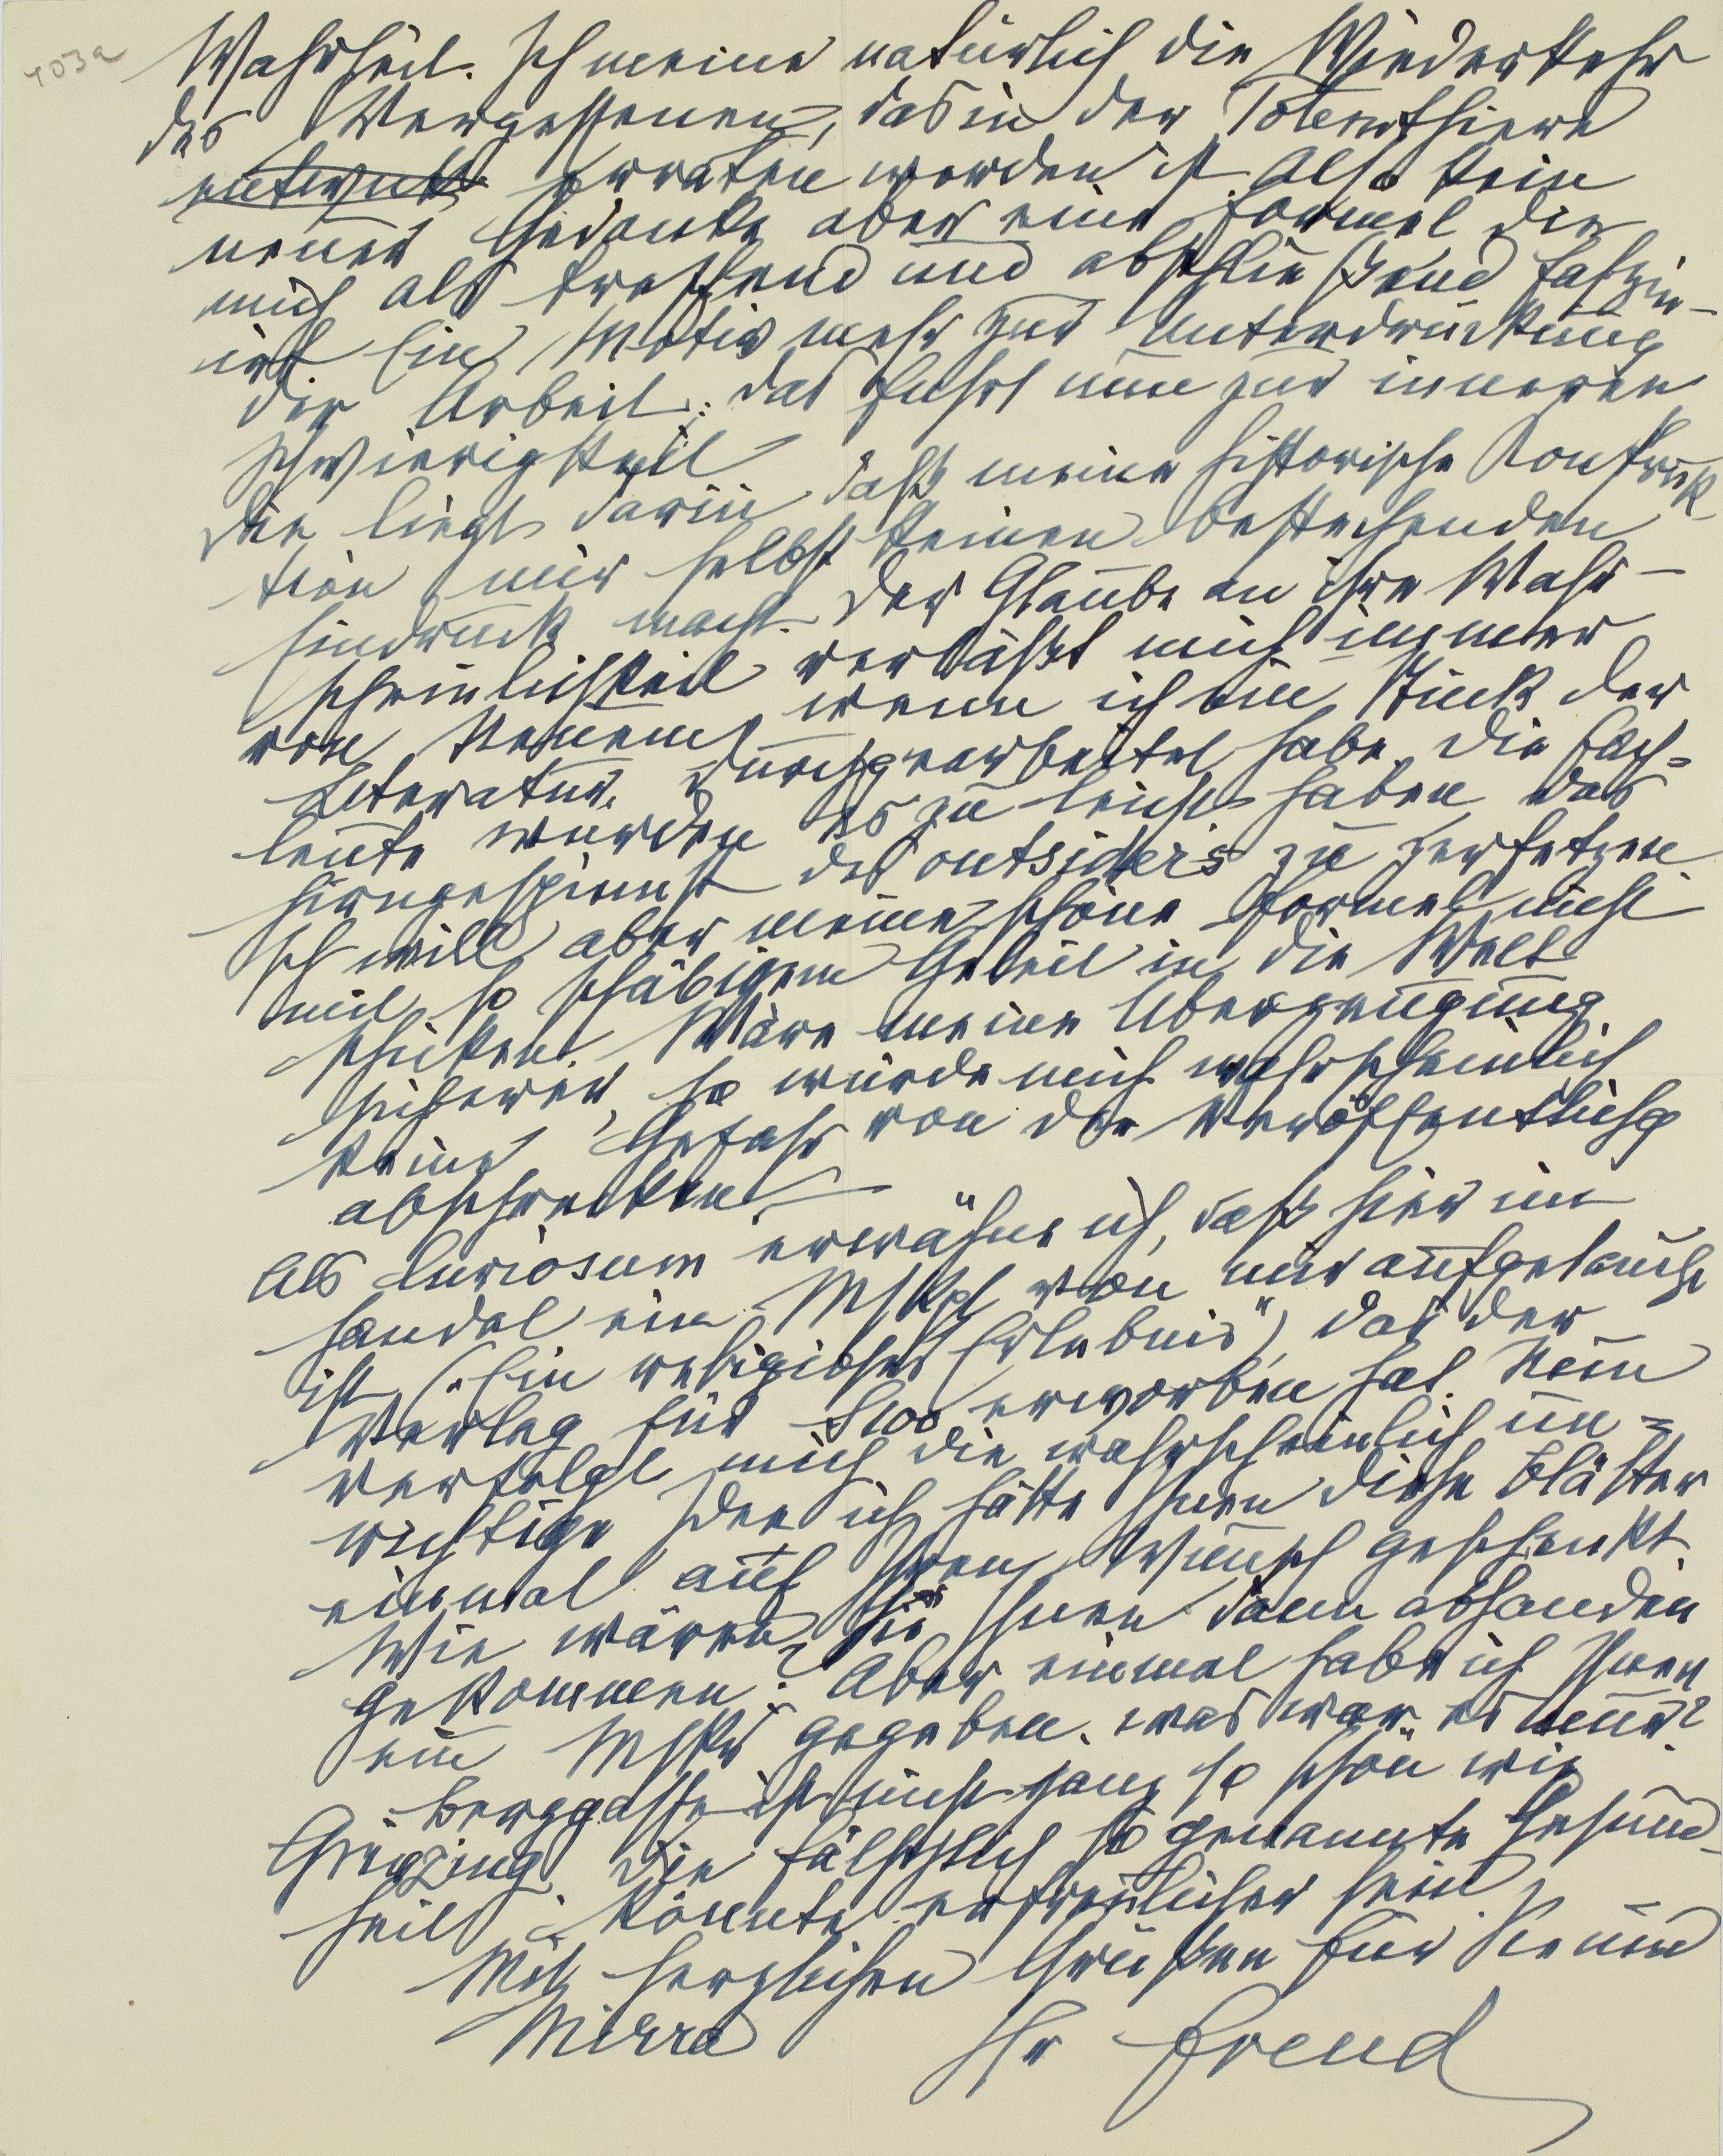 403a
Wahrheit. Ich meine natürlich die Wiederkehr
des Vergessenen, das in der Totemthiere
erraten worden ist. Also kein
neuer Gedanke aber eine Formel die
mich als treffend und abschließend faszin-
irt. Ein Motiv mehr zur Unterdrückung
der Arbeit. Das führt nun zur inneren
Schwierigkeit
Die liegt darin daß meine historische Konstruk-
tion mir selbst keinen bestechenden
Eindruck macht. Der Glaube an ihre Wahr-
scheinlichkeit verläßt mich immer
von Neuem wenn ich ein Stück der
Literatur durchgearbeitet habe. Die Fach-
leute würden es zu leicht haben das
Hirngespinnst des outsiders zu zerfetzen.
Ich will aber meine schöne Formel nicht
mit so schäbigem Geleit in die Welt
schicken. Wäre meine Überzeugung
sicherer, so würde mich wahrscheinlich
keine Gefahr von der Veröffentlichg
abschrecken. –
Als Curiosum erwähne ich, daß hier im
Handel ein Mskpt von mir aufgetaucht
ist ("Ein religiöses Erlebnis"), das der
Verlag für S 100 erworben hat. Nun
verfolgt mich die wahrscheinlich un-
richtige Idee ich hätte Ihnen diese Blätter
einmal auf Ihren Wunsch geschenkt.
Wie wären sie Ihnen dann abhanden
gekommen? Aber einmal habe ich Ihnen
ein Mskr gegeben. Was war es nur?
Berggasse ist nicht ganz so schön wie
Grinzing. Die fälschlich so genannte Gesund-
heit könnte erfreulicher sein.
Mit herzlichen Grüßen für Sie und
Mirra
Ihr Freud